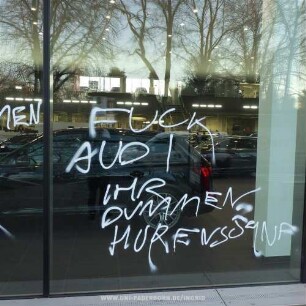 MEN
FUCK
AUDI!
IHR
DUMMEN
HURENSÖHNE
WWW.UNI-PADERBORN.DE/INGRID